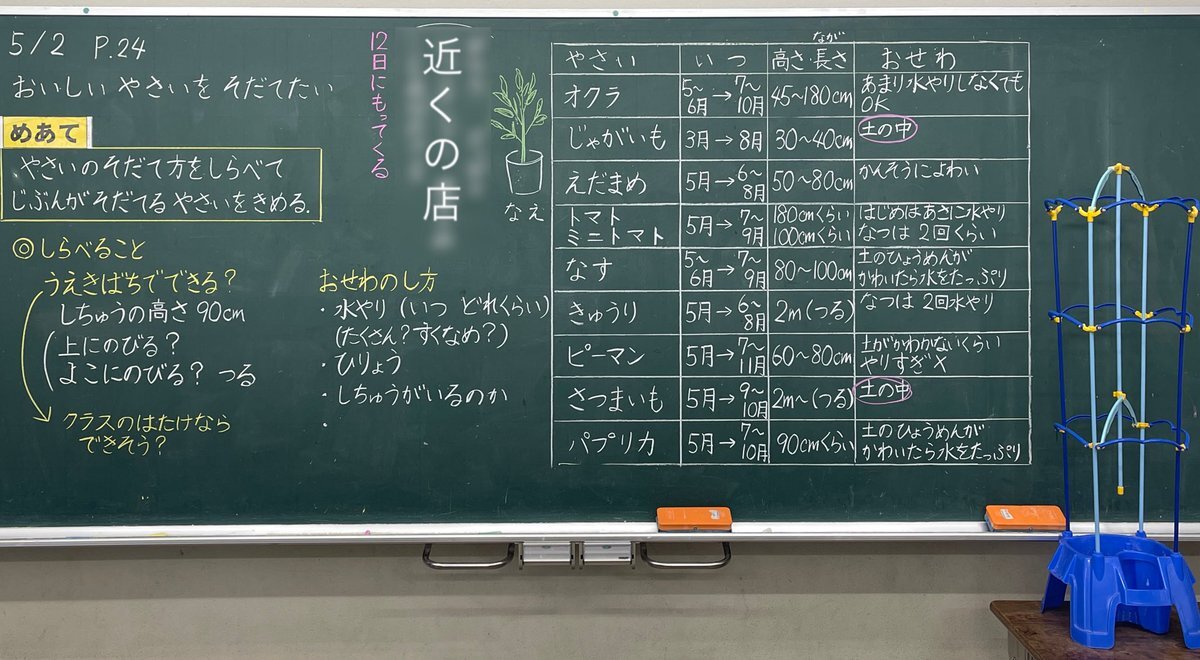 5/2 P.24
おいしい やさいを そだてたい
めあて
やさいのそだて方をしらべて
じぶんがそだてる やさいをきめる.
◎しらべること
うえきばちでできる?
しちゅうの高さ 90cm
上にのびる?
よこにのびる? つる
クラスのはたけなら
できそう?
おせわのし方
・水やり (いつ どれくらい)
(たくさん? すくなめ?)
・ひりょう
・しちゅうがいるのか
・
12日にもってくる
近くの店
なえ
やさい いつ 高さ・長さ おせわ
なが
オクラ 5~6月→7~10月 45~180cm あまり水やりしなくても
OK
じゃがいも 3月→8月 30~40cm 土の中
えだまめ 5月→6~8月 50~80cm かんそうによわい
トマト 5月→7~9月 180cmくらい はじめはあさに水やり
ミニトマト 100cmくらい なつは 2回くらい
なす 5~6月→7~9月 80~100cm 土のひょうめんが
かわいたら水をたっぷり
きゅうり 5月→6~8月 2m(つる) なつは 2回水やり
ピーマン 5月→7~11月 60~80cm 土がかわかないくらい
やりすぎ×
さつまいも 5月→9~10月 2m~(つる) 土の中
パプリカ 5月→7~10月 90cmくらい 土のひょうめんが
かわいたら水をたっぷり